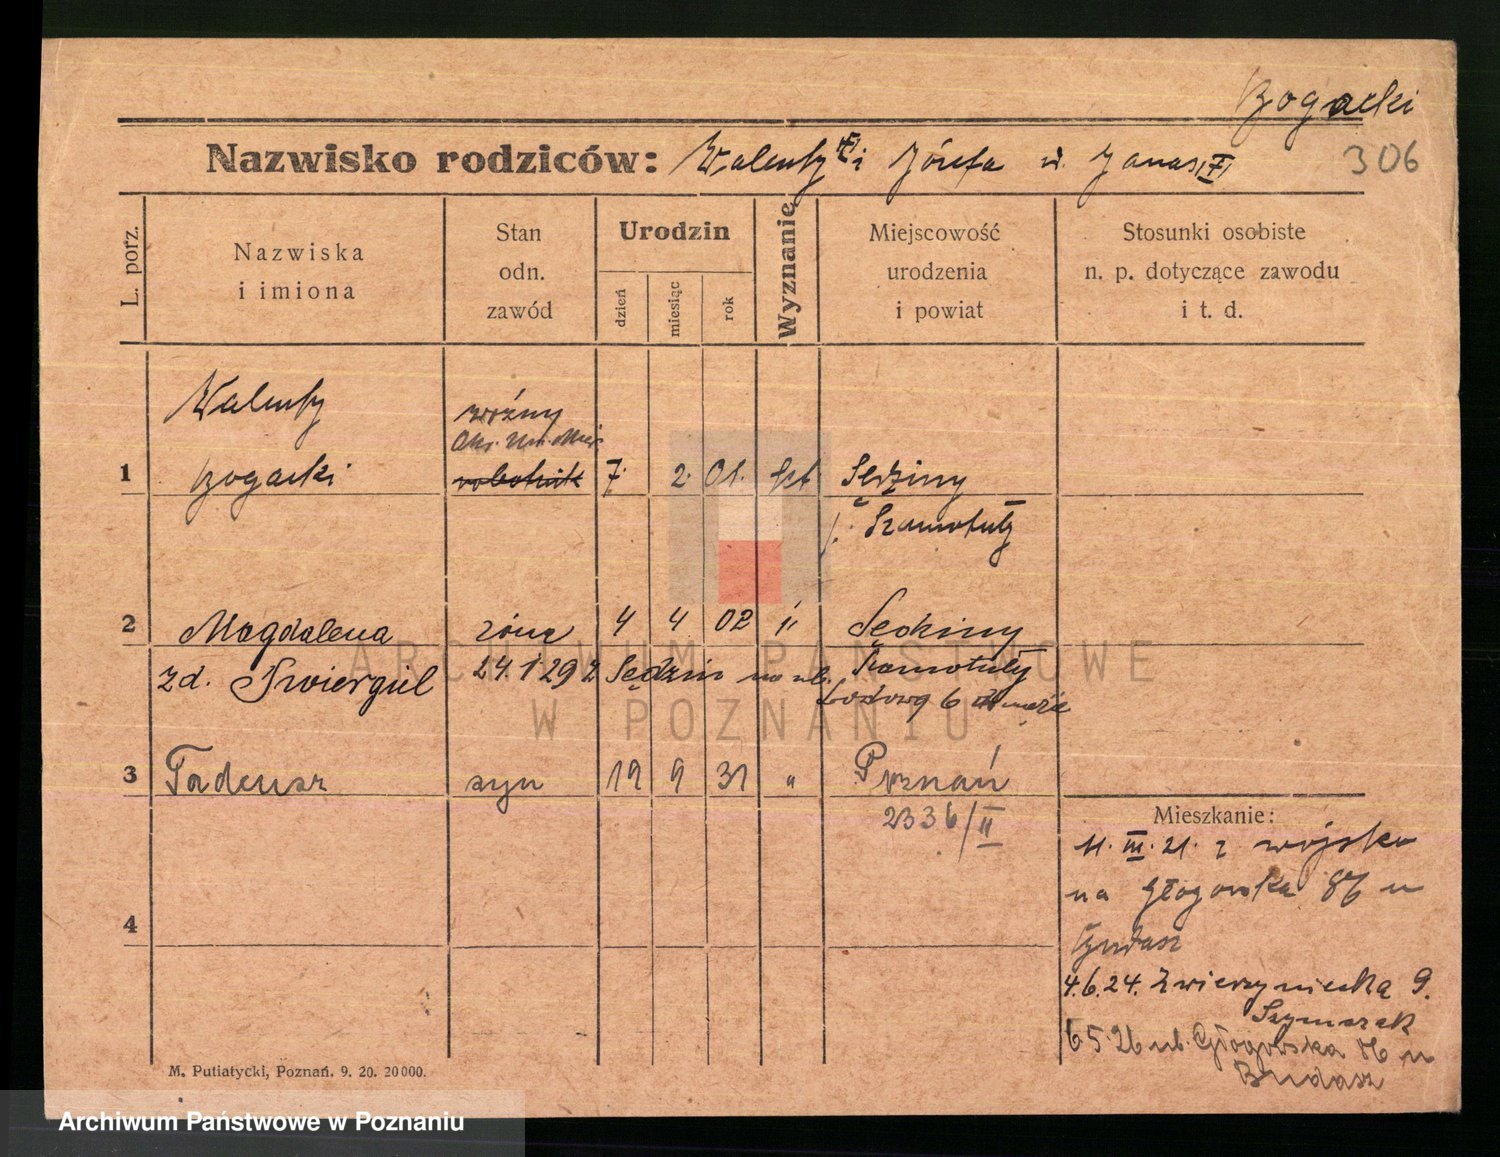 Bogacki
Nazwisko rodziców: Walenty i Józefa u. Janas
306
L. porz.
Nazwiska
i imiona
Stan
odn.
zawód
Urodzin
dzień
miesiąc
rok
Wyznanie
Miejscowość
urodzenia
i powiat
Stosunki osobiste
n. p. dotyczące zawodu
i t. d.
Walenty
woźny
1 Bogacki robotnik 7. 2. 01. kt Sędziny
Szamotuły
2 Magdalena żona 4 4 02 " Sędziny
zd. Świergiel 24.1.29 z Sędzin na ul. Szamotuły
Lodową 6
3 Tadeusz syn 19 9 31 " Poznań
2336/II
Mieszkanie:
11. III. 21. z wojska
na Głogowska 86 u
Brudasz
4
4.6.24. Zwierzyniecka 9.
Szymczak
6 5 26 ul. Głogowska 86 u
Brudasz
M. Putiatycki, Poznań. 9. 20. 20000.
ARCHIWUM PAŃSTWOWE
W POZNANIU
Archiwum Państwowe w Poznaniu